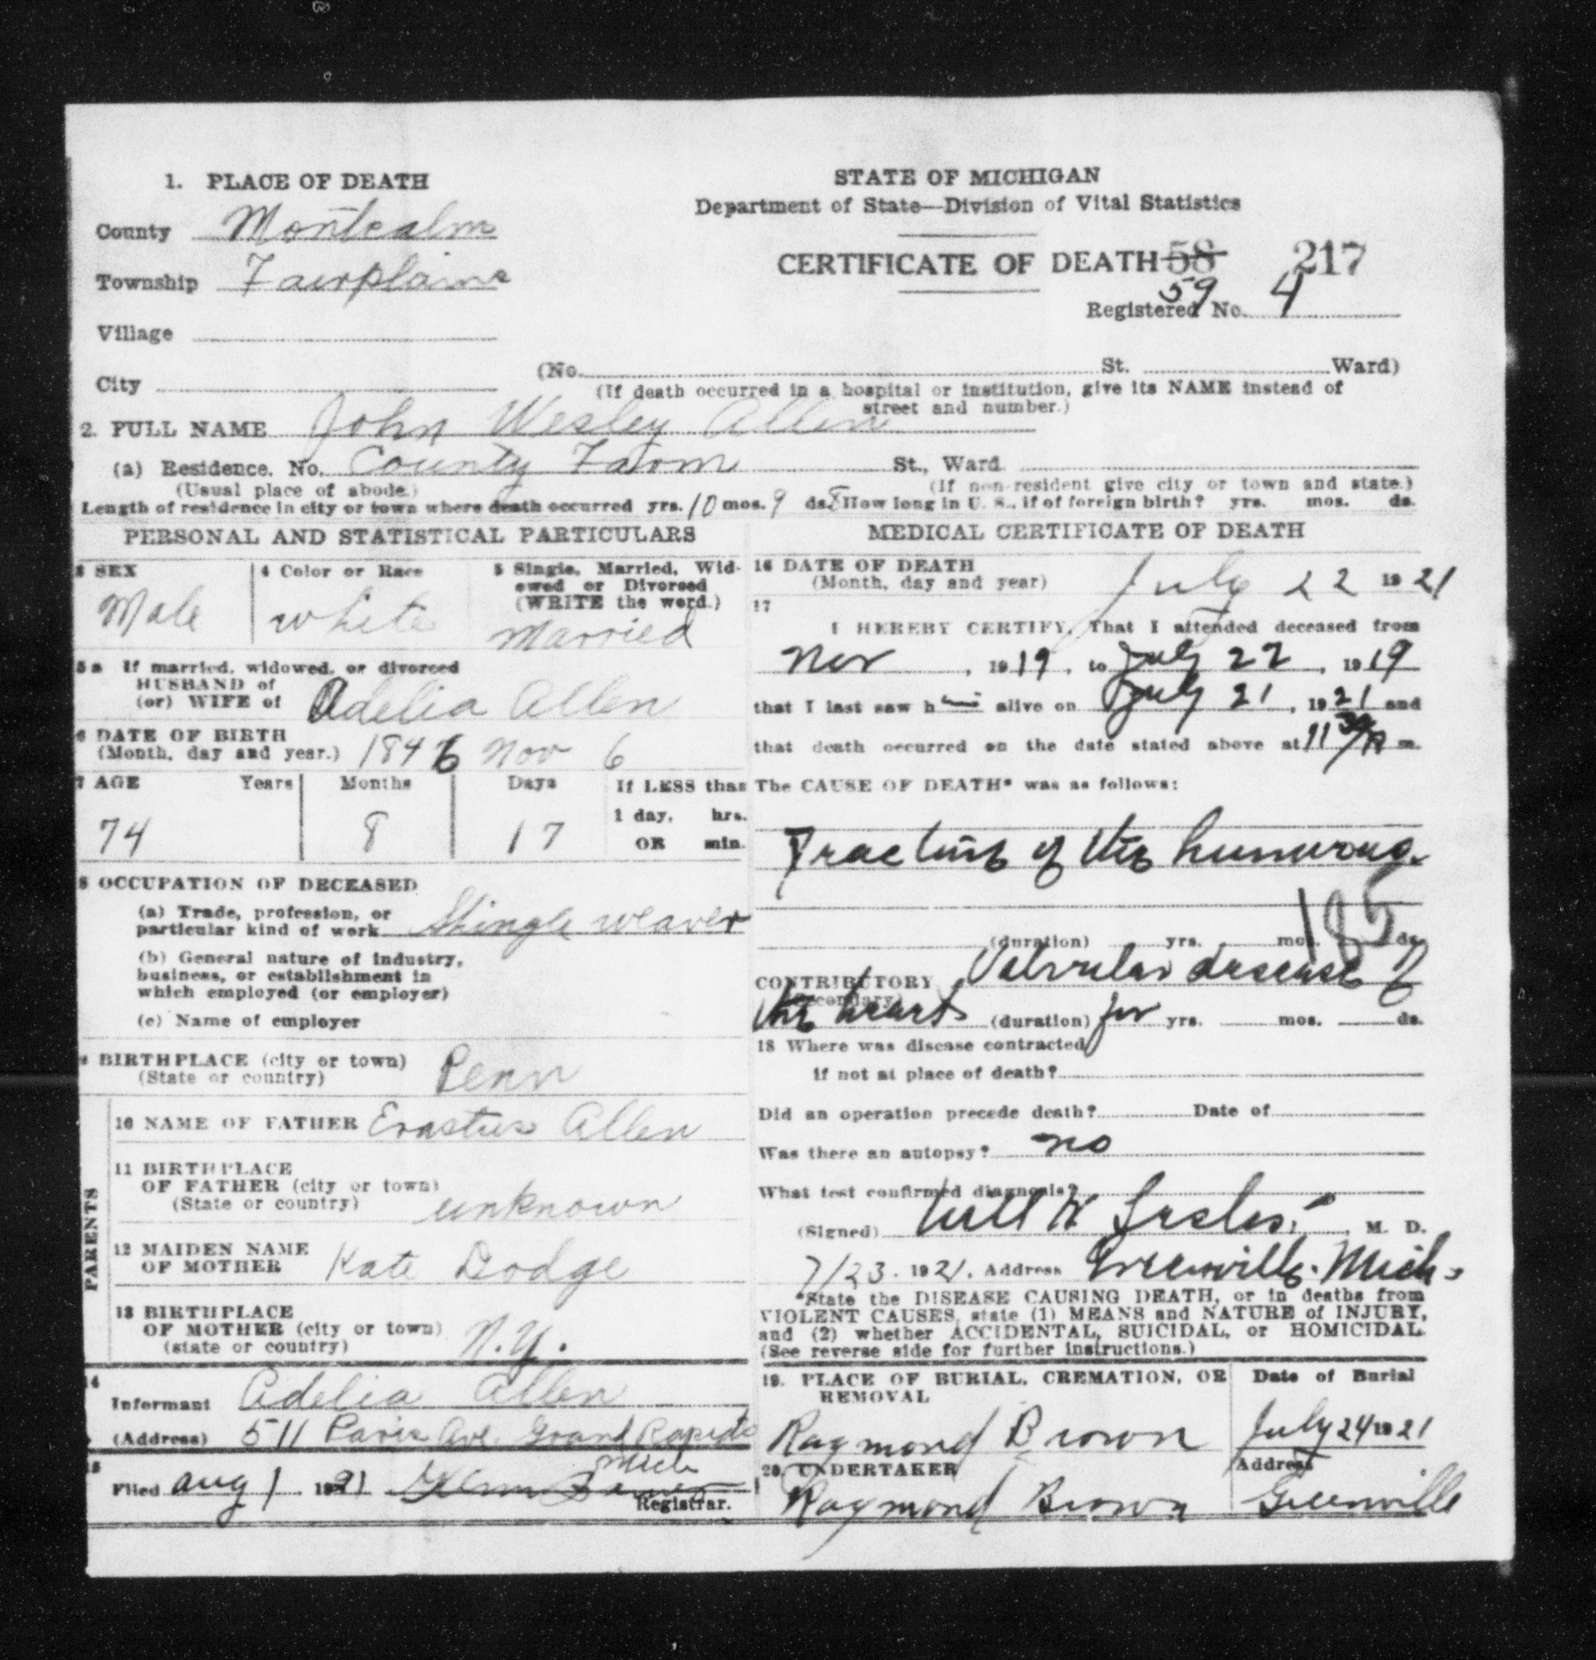 1. PLACE OF DEATH
County Montcalm
Township Fairplains
Village
City
STATE OF MICHIGAN
Department of State—Division of Vital Statistics
CERTIFICATE OF DEATH 58 217
59
Registered No. 4
(No. St. Ward)
(If death occurred in a hospital or institution, give its NAME instead of
street and number.)
2. FULL NAME John Wesley Allen
(a) Residence. No. County Farm St., Ward.
(Usual place of abode.) (If non-resident give city or town and state.)
Length of residence in city or town where death occurred yrs. 10 mos. 9 ds. 8 How long in U. S., if of foreign birth? yrs. mos. ds.
PERSONAL AND STATISTICAL PARTICULARS
3 SEX
Male
4 Color or Race
White
5 Single, Married, Wid-
owed or Divorced
(WRITE the word.)
Married
5a If married, widowed, or divorced
HUSBAND of
(or) WIFE of Adelia Allen
6 DATE OF BIRTH
(Month, day and year.) 1846 Nov 6
7 AGE Years Months Days If LESS than
1 day, hrs.
OR min.
74 8 17
8 OCCUPATION OF DECEASED
(a) Trade, profession, or
particular kind of work Shingle weaver
(b) General nature of industry,
business, or establishment in
which employed (or employer)
(c) Name of employer
9 BIRTHPLACE (city or town)
(State or country) Penn
PARENTS
10 NAME OF FATHER Erastus Allen
11 BIRTHPLACE
OF FATHER (city or town)
(State or country) unknown
12 MAIDEN NAME
OF MOTHER Kate Dodge
13 BIRTHPLACE
OF MOTHER (city or town)
(state or country) N.Y.
14
Informant Adelia Allen
(Address) 511 Paris Ave. Grand Rapids
Mich
15
Filed Aug 1 1921
Registrar.
MEDICAL CERTIFICATE OF DEATH
16 DATE OF DEATH
(Month, day and year) July 22 1921
17
I HEREBY CERTIFY, That I attended deceased from
Nov , 1919, to July 22, 1919
that I last saw him alive on July 21, 1921 and
that death occurred on the date stated above at 11 30/A m.
The CAUSE OF DEATH* was as follows:
Fracture of the humerous
185
(duration) yrs. mos. ds.
CONTRIBUTORY Valvular disease of
(Secondary)
the heart (duration) for yrs. mos. ds.
18 Where was disease contracted
if not at place of death?
Did an operation precede death? Date of
Was there an autopsy? no
What test confirmed diagnosis?
(Signed) Will W , M. D.
7/23. 1921. Address Greenville. Mich.
*State the DISEASE CAUSING DEATH, or in deaths from
VIOLENT CAUSES, state (1) MEANS and NATURE of INJURY,
and (2) whether ACCIDENTAL, SUICIDAL, or HOMICIDAL.
(See reverse side for further instructions.)
19. PLACE OF BURIAL, CREMATION, OR
REMOVAL
Raymond Brown
Date of Burial
July 24 1921
20. UNDERTAKER
Raymond Brown
Address
Greenville